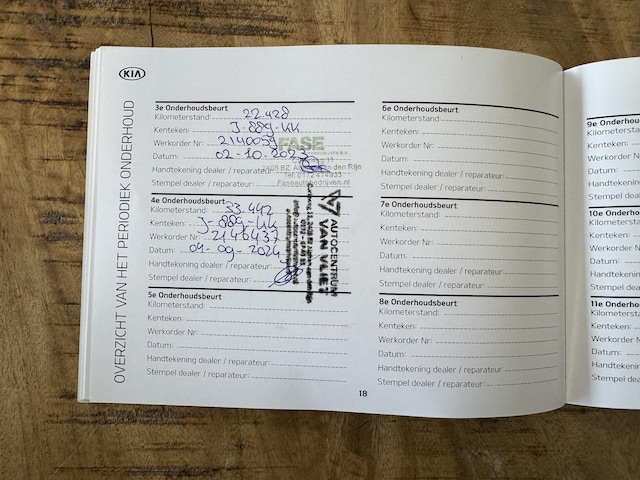 KIA
OVERZICHT VAN HET PERIODIEK ONDERHOUD
3e Onderhoudsbeurt
Kilometerstand: 22.428
Kenteken: J-889-KK
Werkorder Nr: 2140059
Datum: 02-10-2023
Handtekening dealer / reparateur:
Stempel dealer / reparateur:
FASE
Tel: 0172474933
Faseautobedrijven.nl
4e Onderhoudsbeurt
Kilometerstand: 33.442
Kenteken: J-889-KK
Werkorder Nr: 2146437
Datum: 04-09-2024
Handtekening dealer / reparateur:
Stempel dealer / reparateur:
AUTOCENTRUM
VAN VLIET
5e Onderhoudsbeurt
Kilometerstand:
Kenteken:
Werkorder Nr:
Datum:
Handtekening dealer / reparateur:
Stempel dealer / reparateur:
6e Onderhoudsbeurt
Kilometerstand:
Kenteken:
Werkorder Nr:
Datum:
Handtekening dealer / reparateur:
Stempel dealer / reparateur:
7e Onderhoudsbeurt
Kilometerstand:
Kenteken:
Werkorder Nr:
Datum:
Handtekening dealer / reparateur:
Stempel dealer / reparateur:
8e Onderhoudsbeurt
Kilometerstand:
Kenteken:
Werkorder Nr:
Datum:
Handtekening dealer / reparateur:
Stempel dealer / reparateur:
18
9e Onderhoud
Kilometersta
Kenteken:
Werkorder
Datum:
Handtekenin
Stempel dea
10e Onder
Kilometersta
Kenteken:
Werkorder
Datum:
Handtekenin
Stempel dea
11e Onder
Kilometers
Kenteken:
Werkorder
Datum:
Handtekenin
Stempel dea